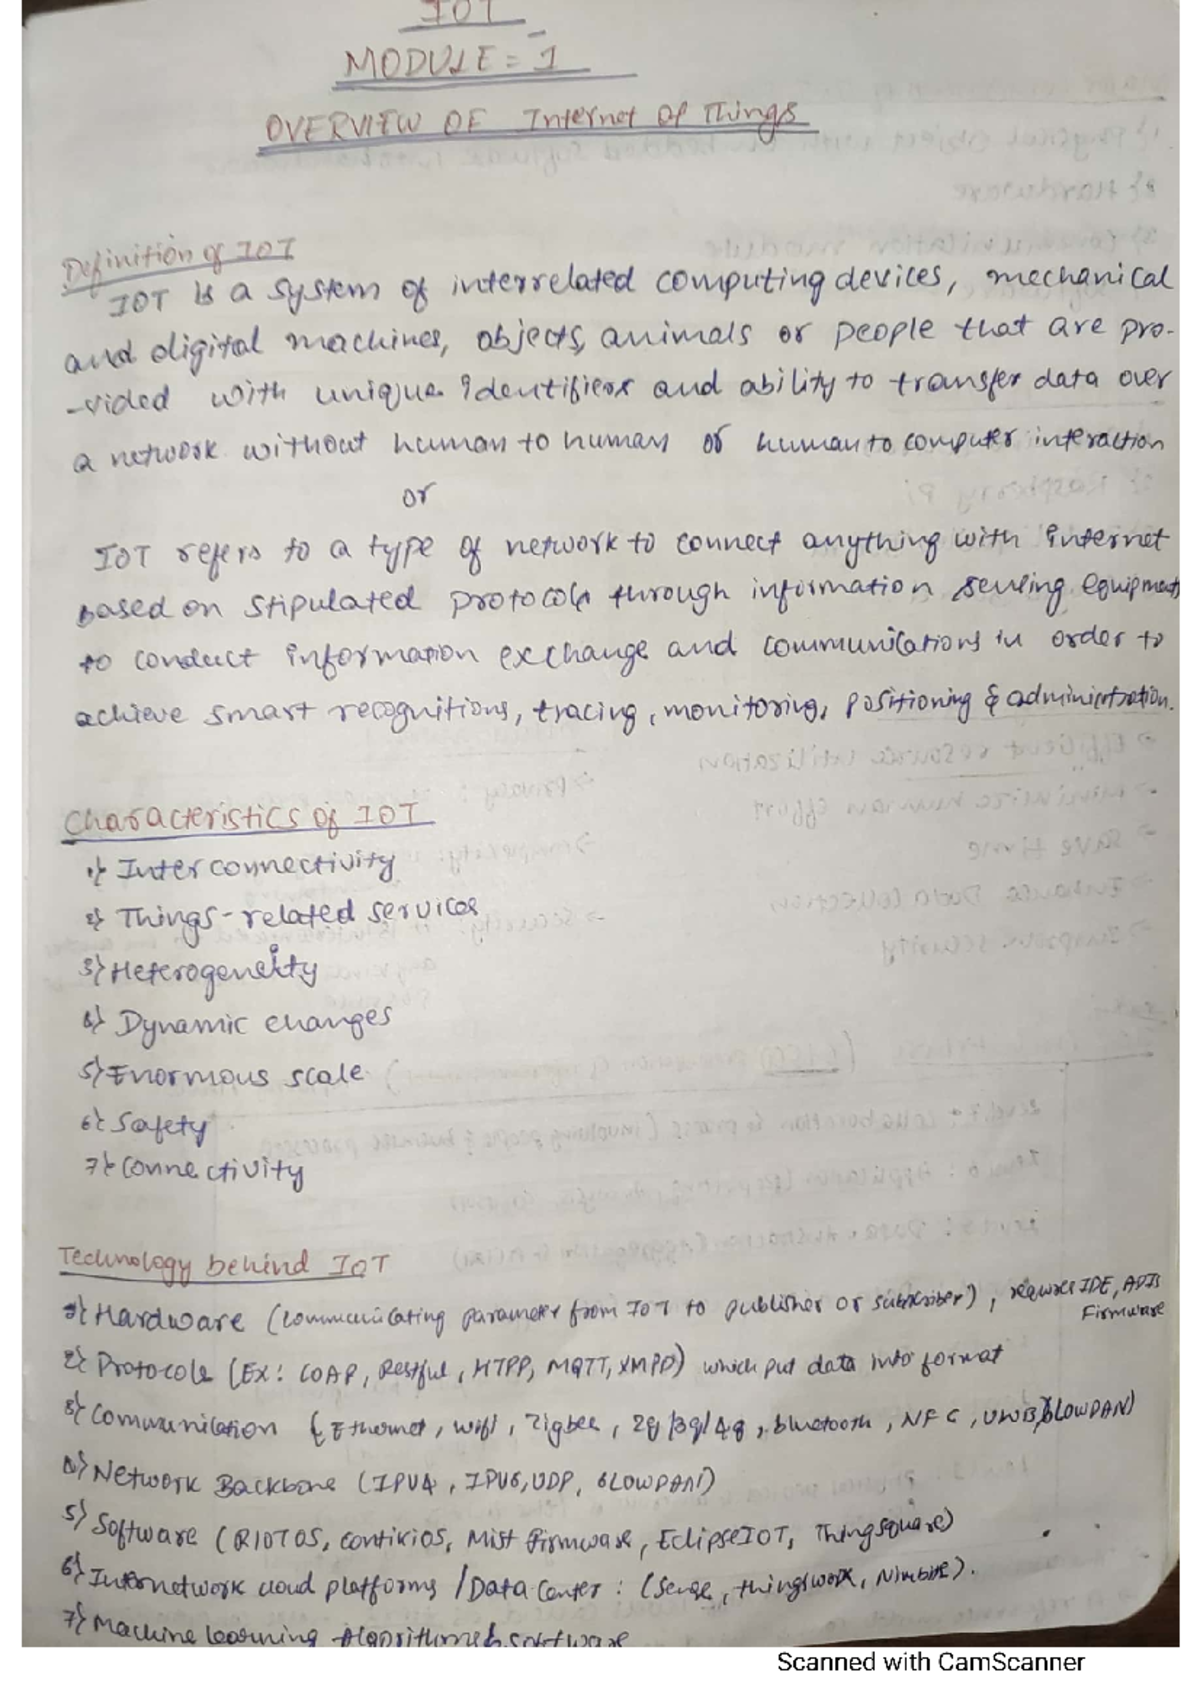 IOT
MODULE = 1
OVERVIEW OF Internet Of Things
Definition of IOT
IOT is a system of interrelated computing devices, mechanical
and digital machines, objects, animals or people that are pro-
-vided with unique identifiers and ability to transfer data over
a network without human to human or human to computer interaction
or
IOT refers to a type of network to connect anything with internet
based on stipulated protocols through information sensing equipments
to conduct information exchange and communications in order to
achieve smart recognitions, tracing, monitoring, positioning & administration.
Characteristics of IOT
1) Interconnectivity
2) Things-related services
3) Heterogeneity
4) Dynamic changes
5) Enormous scale
6) Safety
7) Connectivity
Technology behind IOT
1) Hardware (communicating parameter from IOT to publisher or subscriber), requires IDE, APIs
Firmware
2) Protocols (EX: COAP, Restful, HTPP, MQTT, XMPP) which put data into format
3) Communication (Ethernet, wifi, Zigbee, 2g/3g/4g, bluetooth, NFC, UWB, 6LOWPAN)
4) Network Backbone (IPV4, IPV6, UDP, 6LOWPAN)
5) Software (RIOTOS, contikiOS, Mist firmware, EclipseIOT, Thingsquare)
6) Internetwork cloud platforms / Data Center: (Sense, thingswork, Nimbits).
7) Machine learning Algorithms & software
Scanned with CamScanner